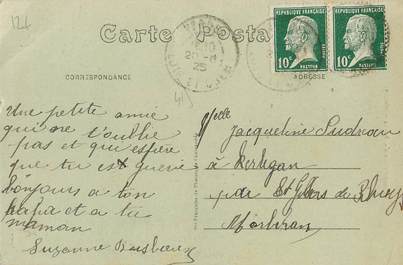 124
Carte Postale
CORRESPONDANCE
ADRESSE
RÉPUBLIQUE FRANÇAISE
10c POSTES
RÉPUBLIQUE FRANÇAISE
10c POSTES
20-11
25
LOIR-ET-CHER
Une petite amie
qui ne t'oublie
pas et qui espère
que tu es guérie
bonjours a ton
papa et a ta
maman
Suzanne
Melle
Jacqueline
à Kerlegan
par St Gildas de Rhuys
Morbihan